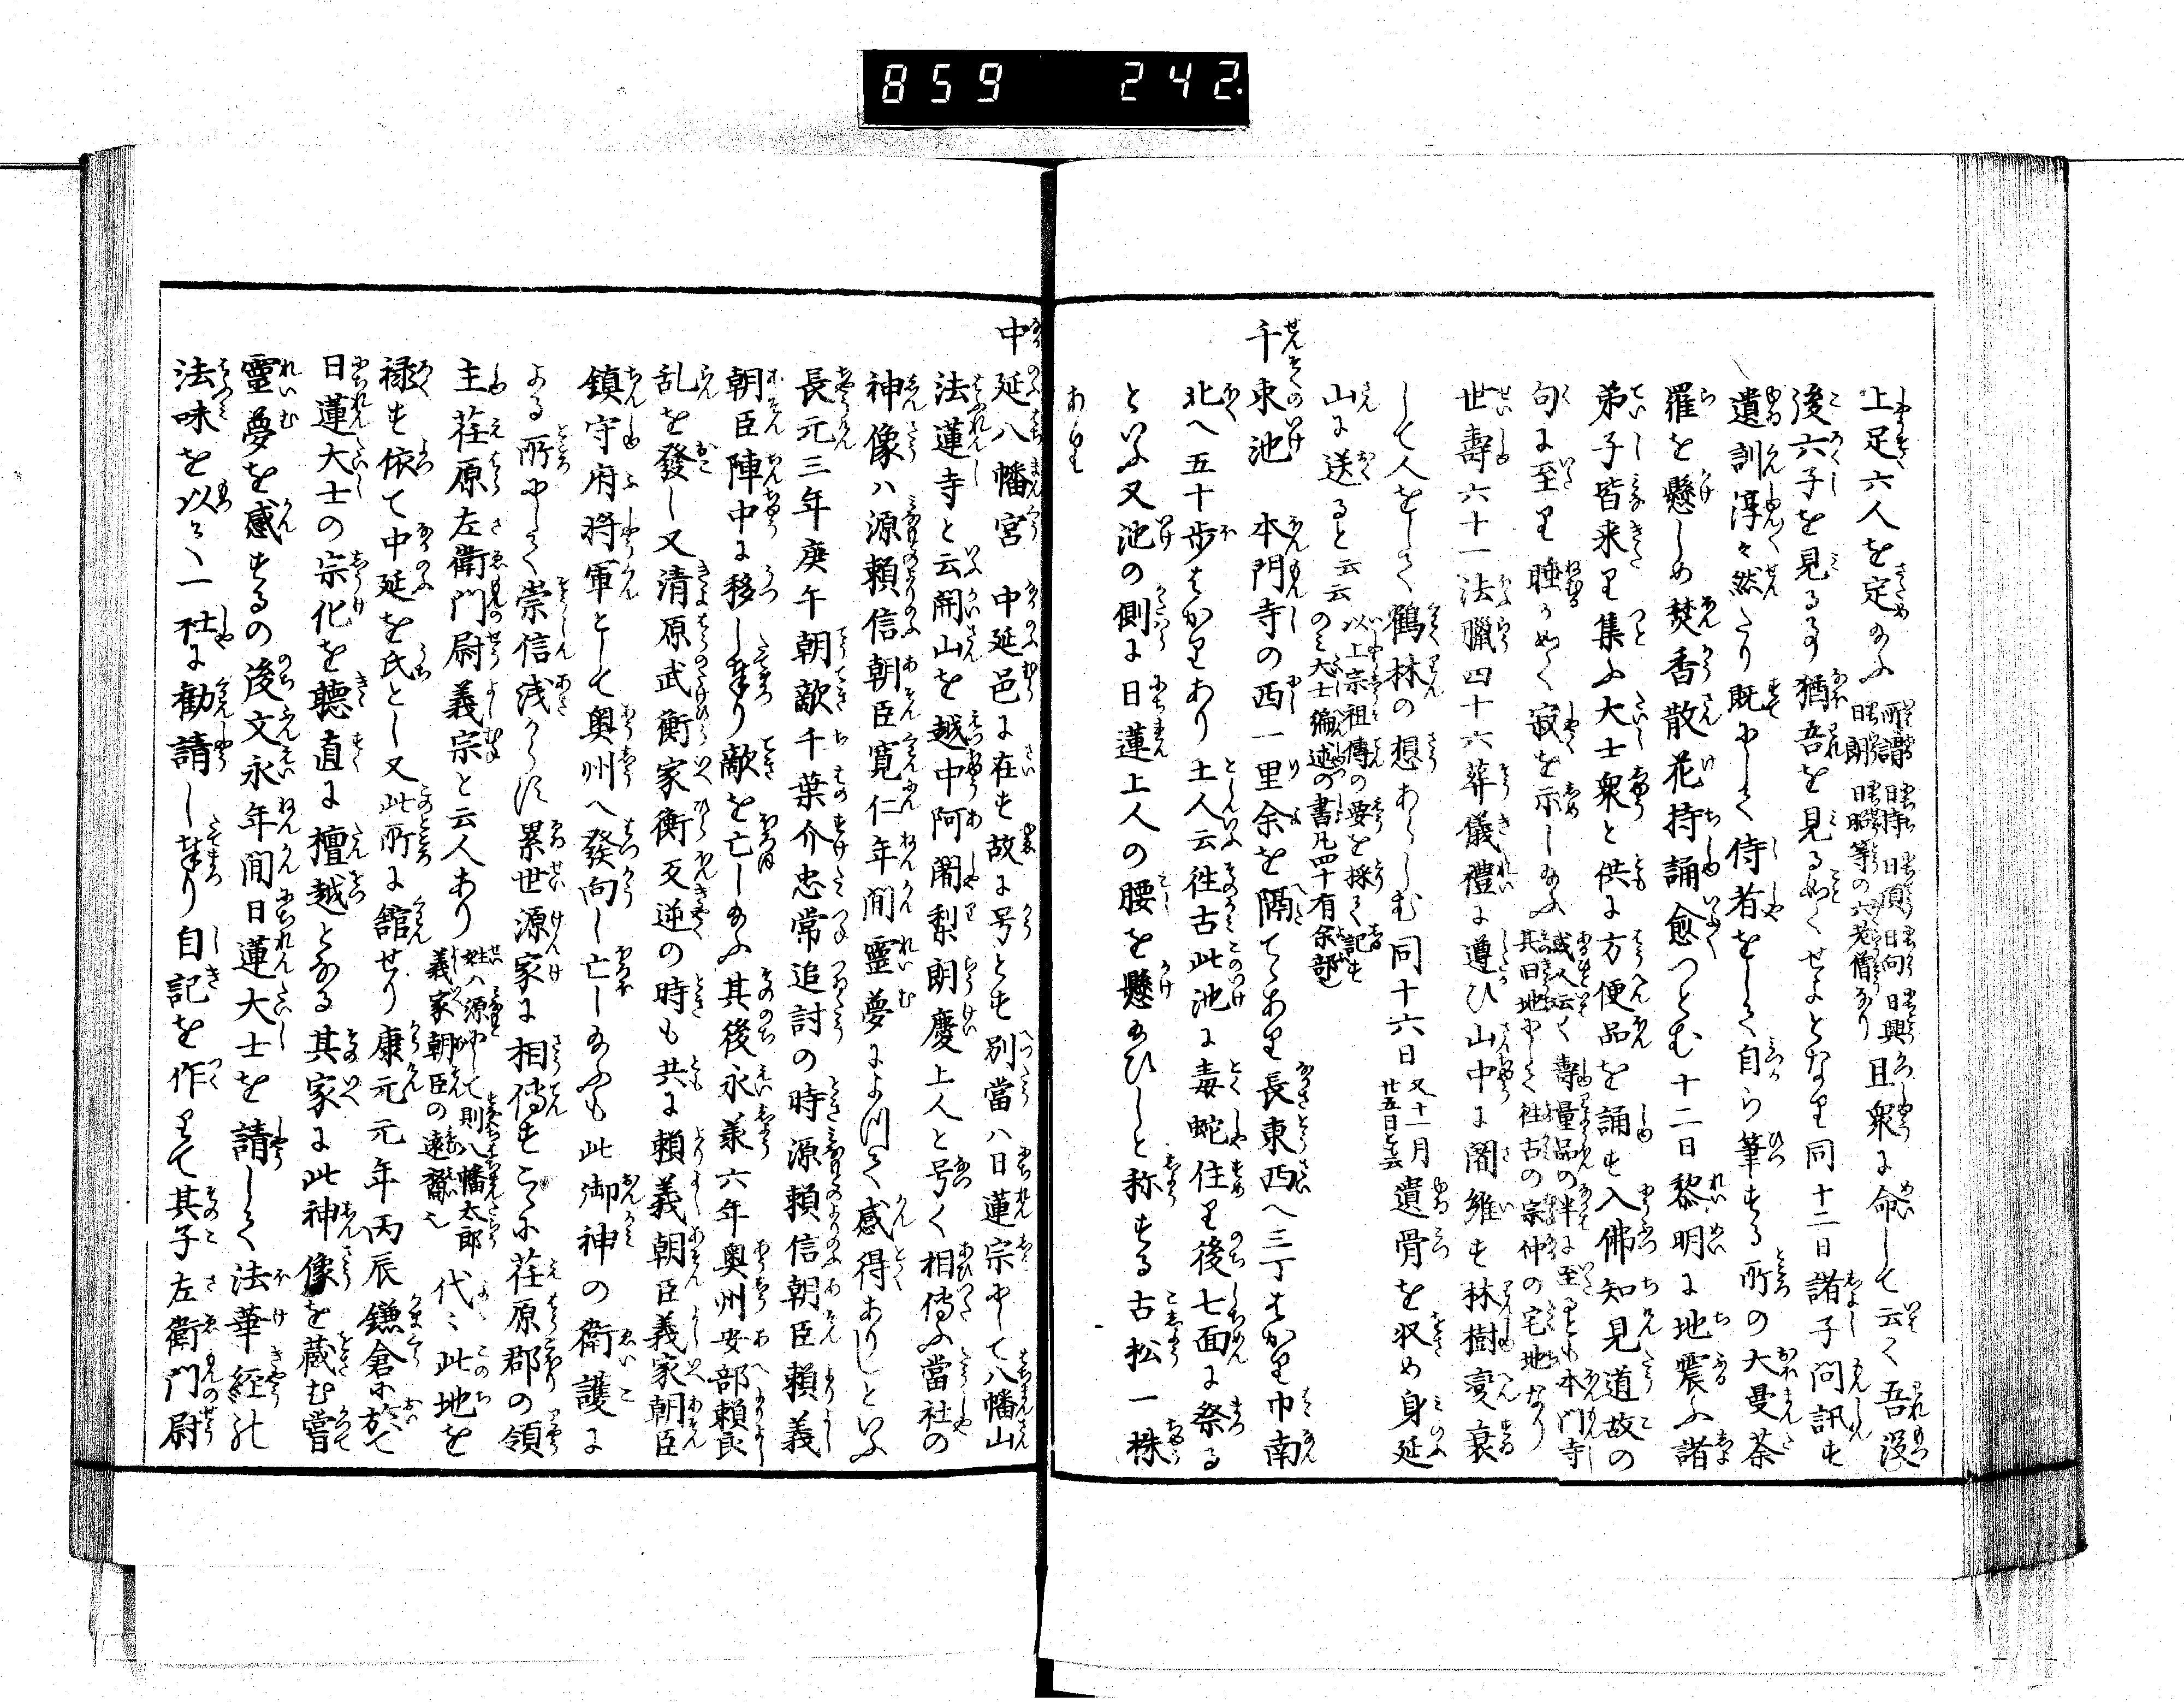 859 242.
上足六人を定め給ふ 所謂日持日頂日向日興
日朗日昭等の六老僧なり 且衆に命して云く吾没
後六子を見るる猶吾を見るかことくせよとなり同十二日諸子問訊す
遺訓淳々然たり既にして侍者をして自ら筆する所の大曼荼
羅を懸しめ焚香散花持誦愈つとむ十三日黎明に地震ふ諸
弟子皆来り集ふ大士衆と供に方便品を誦す入佛知見道故の
句に至り睡るかことく寂を示し給ふ 或人云く壽量品の半に至るとも本門寺
其旧地にして往古の宗仲の宅地なり
世壽六十一法臘四十六葬儀禮に遵ひ山中に闍維す林樹変衰
して人をして鶴林の想あらしむ同十六日 又十一月
廿五日と云 遺骨を収め身延
山に送ると云云 以上宗祖傳の要を採て記す
のミ大士編述の書凡四十有余部
千束池 本門寺の西一里余を隔てあり長東西へ三丁はかり巾南
北へ五十歩はかりあり土人云往古此池に毒蛇住り後七面に祭る
といふ又池の側に日蓮上人の腰を懸給ひしと称する古松一株
あり
中延八幡宮 中延邑に在す故に号とす別當ハ日蓮宗にして八幡山
法蓮寺と云開山を越中阿闍梨朗慶上人と号く相傳ふ當社の
神像ハ源頼信朝臣寛仁年間靈夢によりて感得ありしといふ
長元三年庚午朝敵千葉介忠常追討の時源頼信朝臣頼義
朝臣陣中に移し奉り敵を亡し給ふ其後永義六年奥州安部頼良
乱を發し又清原武衡家衡反逆の時も共に頼義朝臣義家朝臣
鎮守府将軍として奥州へ發向し亡し給ふも此御神の衛護に
よる所にして崇信浅からす累世源家に相傳すこゝに荏原郡の領
主荏原左衛門尉義宗と云人あり 姓ハ源にして則八幡太郎
義家朝臣の遠裔也 代々此地を
禄す依て中延を氏とし又此所に舘せり康元元年丙辰鎌倉に於て
日蓮大士の宗化を聴直に檀越となる其家に此神像を蔵む嘗
靈夢を感するの後文永年間日蓮大士を請して法華経の
法味を以て一社に勧請し奉り自記を作りて其子左衛門尉